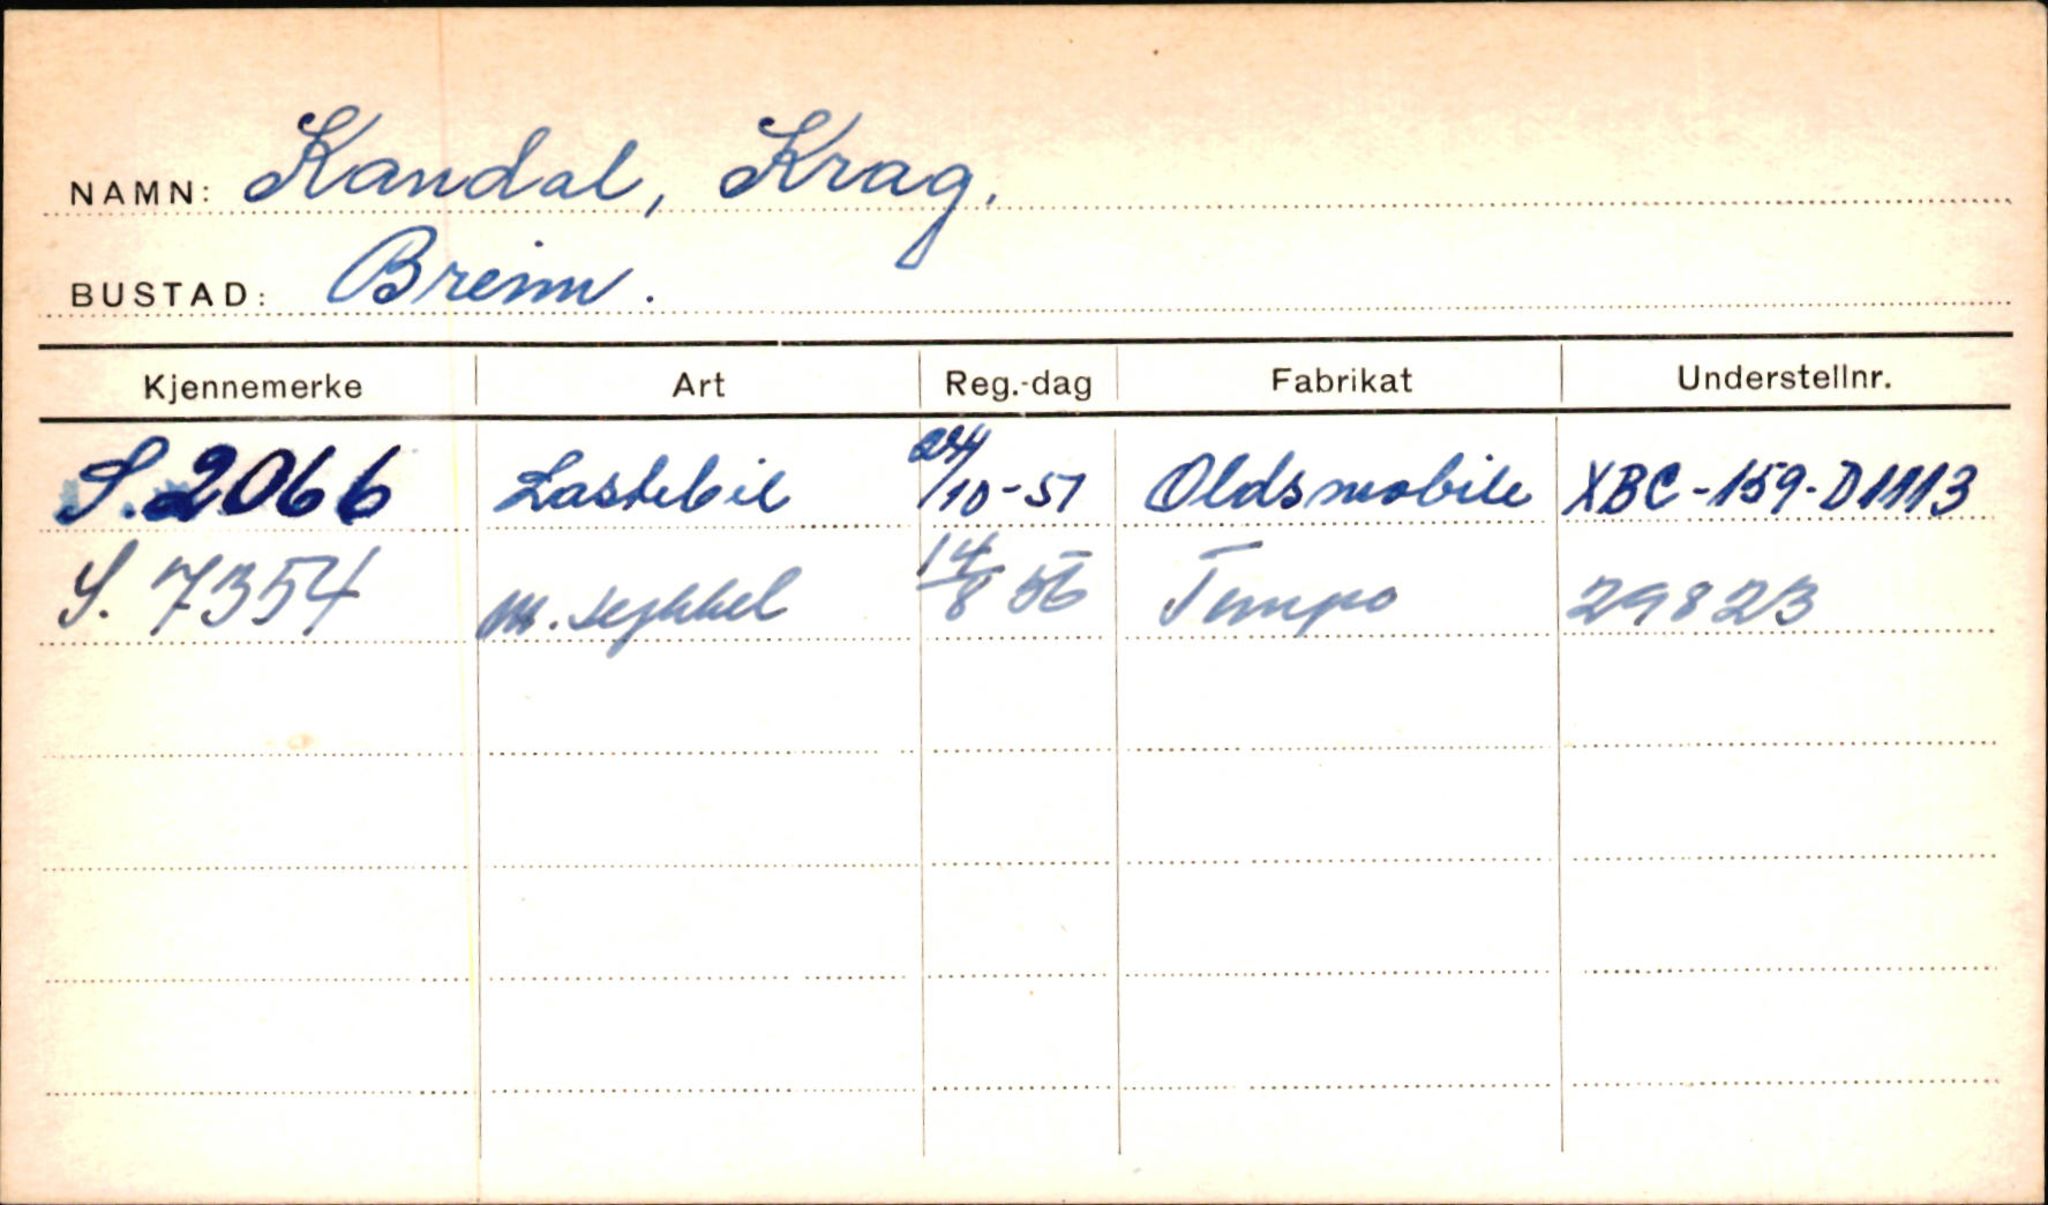 NAMN: Kandal, Krag.
BUSTAD: Breim.
Kjennemerke Art Reg.-dag Fabrikat Understellnr.
S. 2066 Lastebil 24/10-51 Oldsmobile XBC-159-D1113
S. 7354 m. sykkel 14/8 56 Tempo 29823